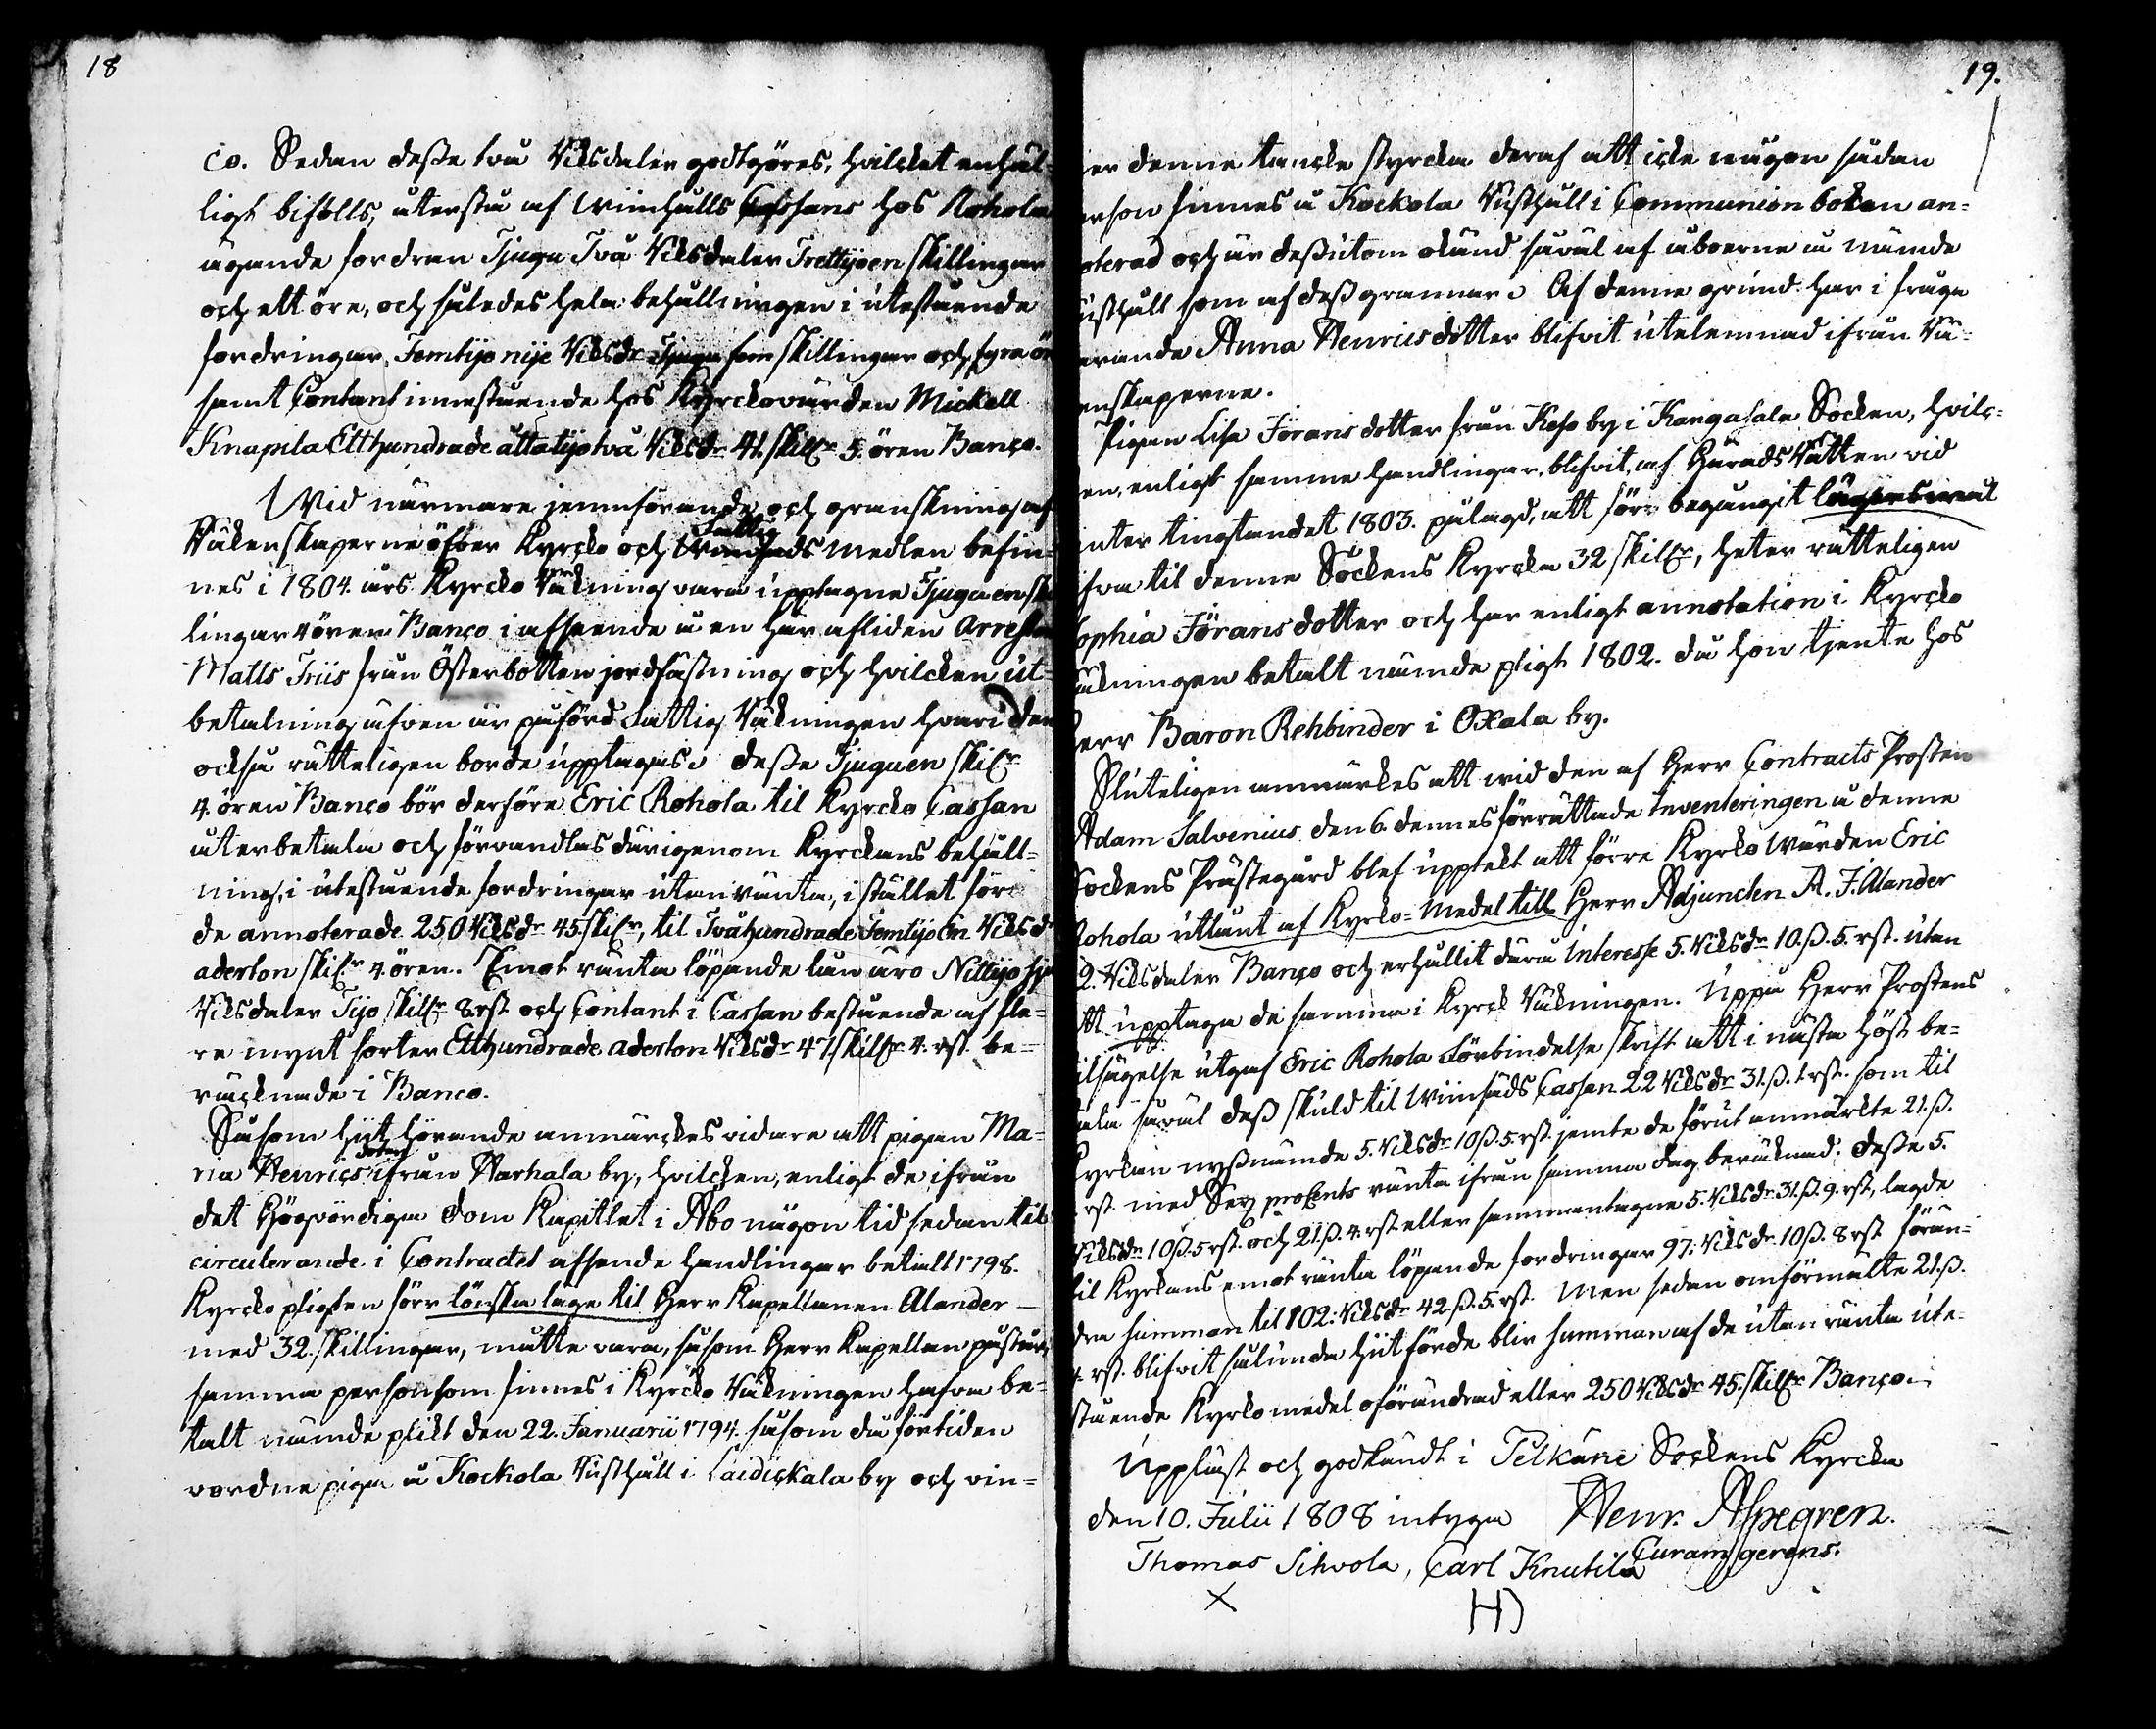 18
co. Sedan desse två Riksdaler godtgöres, hvilcket enhäl-
ligt bifölls, återstå af Wiinhälls Cassans hos Rohola
ägande fordran Tjugu Två Riksdaler Trettijoen skillingar
och ett öre, och således hela behållningen i utestående
fordringar Femtijo nije Riksdr Tjugu fem skillingar och fyra ör
samt Contant innestående hos Kyrckovärden Mickell
Knapila Etthundrade åttatijotvå Riksdr 41. skillr 5. ören Banco.
Wid närmare jemnförande och granskning af
Räkenskaperne öfver Kyrcko och Fattig medlen befin-
nes i 1804. års Kyrcko Räkning vara upptagne Tjuguen skil
lingar 4 ören Banco i afseende å en här afliden Arrestan
Matts Friis från Österbotten jordfästning och hvilcken ut-
betalning äfven är påförd Fattig Räkningen hvari den
också rätteligen borde upptagas. desse Tjuguen skillr
4. ören Banco bör derföre Eric Rohola til Kyrcko Cassan
återbetala och förvandlas därigenom Kyrckans behåll-
ning, i utestående fordringar utan ränta, i stället för
de annoterade 250 Riksdr 45. skillr, til Tvåhundrade Femtijo En Riksdr
aderton skillr 4. ören. Emot ränta löpande lån äro Nittijo sju
Riksdaler Tijo skillr 8. rst och Contant i Cassan bestående af fle-
re mynt sorter Etthundrade aderton Riksdr 47. skillr 4. rst. be-
räcknade i Banco.
Såsom hit hörande anmärckes vidare att pigan Ma-
ria Henrics dotter ifrån Harhala by, hvilcken, enligt de ifrån
det Högvördiga Dom Kapitlet i Åbo någon tid sedan til
circulerande i Contractet afsände handlingar betalt 1798.
Kyrcko pligten för lönska läge til Herr Kapellanen Alander
med 32. skillingar, måtte vara, såsom Herr Kapellan påstår,
samma person som finnes i Kyrcko Räkningen hafva be-
talt nämde plikt den 22. Januarii 1794. såsom då för tiden
vordne piga å Kockola Rusthåll i Laidickala by och vin-
19.
er denne tancke styrcka deraf att icke någon sådan
erson finnes å Kockola Rusthåll i Communion boken an-
oterad och är dessutom okänd såväl af åboerne å nämde
usthåll som af dess grannar. Af denne grund har i fråga
arande Anna Henricsdotter blifvit utelemnad ifrån Rä-
enskaperne.
Pigan Lisa Jöransdotter från Keso by i Kangasala Socken, hvilc-
en, enligt samma handlingar, blifvit, af Härads Rätten vid
inter tingtandet 1803. pålagd, att för begångit lägersmål
ifva til denne Sockens Kyrcka 32 skillr, heter rätteligen
ophia Jöransdotter och har enligt annotation i Kyrcko
äkningen betalt nämde pligt 1802. då hon tjente hos
err Baron Rehbinder i Oxala by.
Sluteligen anmärkes att wid den af Herr Contracts Prosten
Adam Salvenius den 6. dennes förrättade Inventeringen å denne
Sockens Prästegård blef upptekt att förre Kyrko Wärden Eric
Rohola utlånt af Kyrko-Medel till Herr Adjuncten A. J. Alander
2. Riksdaler Banco och erhållit därå Interesse 5. Riksdr 10. ß. 5. rst. utan
tt upptaga de samma i Kyrck Räkningen. Uppå Herr Prostens
ilsägelse utgaf Eric Rohola Förbindelse skrift att i nästa höst be-
tala såväl dess skuld til Wiinsäds Cassan 22 Riksdr 31. ß. 1. rst. som til
Kyrkan nyssnämde 5. Riksdr 10 ß. 5. rst. jemte de förut anmärkte 21. ß.
rst. med Sex proCents ränta ifrån samma dag beräknad. Desse 5.
Riksdr 10 ß. 5 rst. och 21. ß. 4. rst eller sammantagne 5. Riksdr 31. ß. 9. rst, lagde
til Kyrkans emot ränta löpande fordringar 97. Riksdr 10 ß. 8 rst förän-
dra summan til 102. Riksdr 42. ß. 5. rst. Men sedan omförmälte 21. ß.
4. rst. blifvit sålunda hit förde blir summan af de utan ränta ute-
stående Kyrko medel oförändrad eller 250 Riksdr 45. skillr Banco.
Uppläst och godkändt i Pelkäne Sockens Kyrcka
den 10. Julii 1808 intyga Henr. Aspegren.
Curam gerens.
Thomas Sihvola, Carl Knutila
X H)